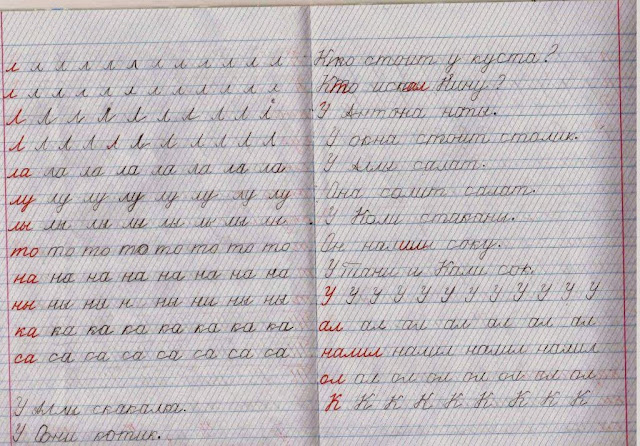 л л л л л л л л л л л л
л л л л л л л л л л л л
Л Л Л Л Л Л Л Л Л Л
Л Л Л Л Л Л Л Л Л Л Л
ла ла ла ла ла ла ла ла
лу лу лу лу лу лу лу лу
лы лы лы лы лы лы лы лы
то то то то то то то то
на на на на на на на на
ны ны ны н ны ны ны ны
ка ка ка ка ка ка ка ка
са са са са са са са са
У Алли скакалка.
У котик.
Кто стоит у куста?
Кто искал Нину?
У Антона ноты.
У окна стоит столик.
У Аллы салат.
Она солит салат.
У Коли стаканы.
Он соку.
У Тани и Коли сок.
У У У У У У У У У У У У
ал ал ал ал ал ал ал
налил налил налил налил
ол ол ол ол ол ол ол ол
К К К К К К К К К